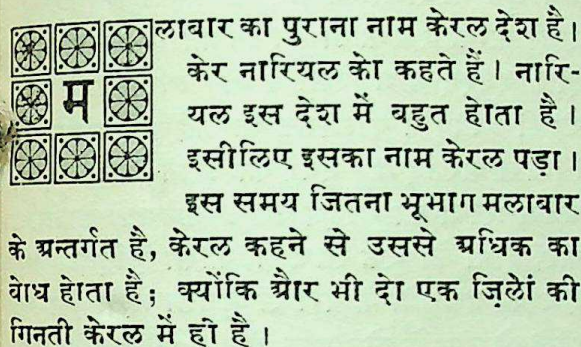 मलाबार का पुराना नाम केरल देश है।
केर नारियल को कहते हैं। नारि-
यल इस देश में बहुत होता है।
इसीलिए इसका नाम केरल पड़ा।
इस समय जितना भूभाग मलाबार
के अन्तर्गत है, केरल कहने से उससे अधिक का
बोध होता है; क्योंकि और भी दो एक ज़िलों की
गिनती केरल में ही है।